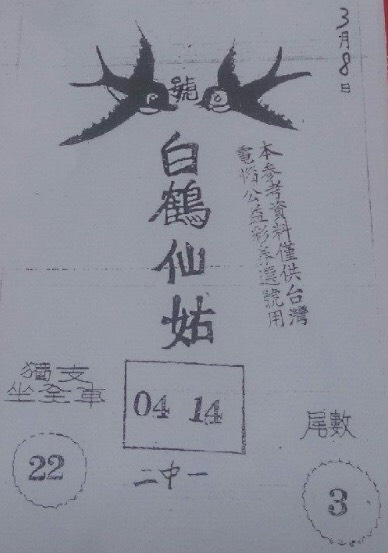 3月8日
號
白鶴仙姑
本參考資料僅供台灣
電腦公益彩券選號用
獨支
坐全車
22
04 14
二中一
尾數
3